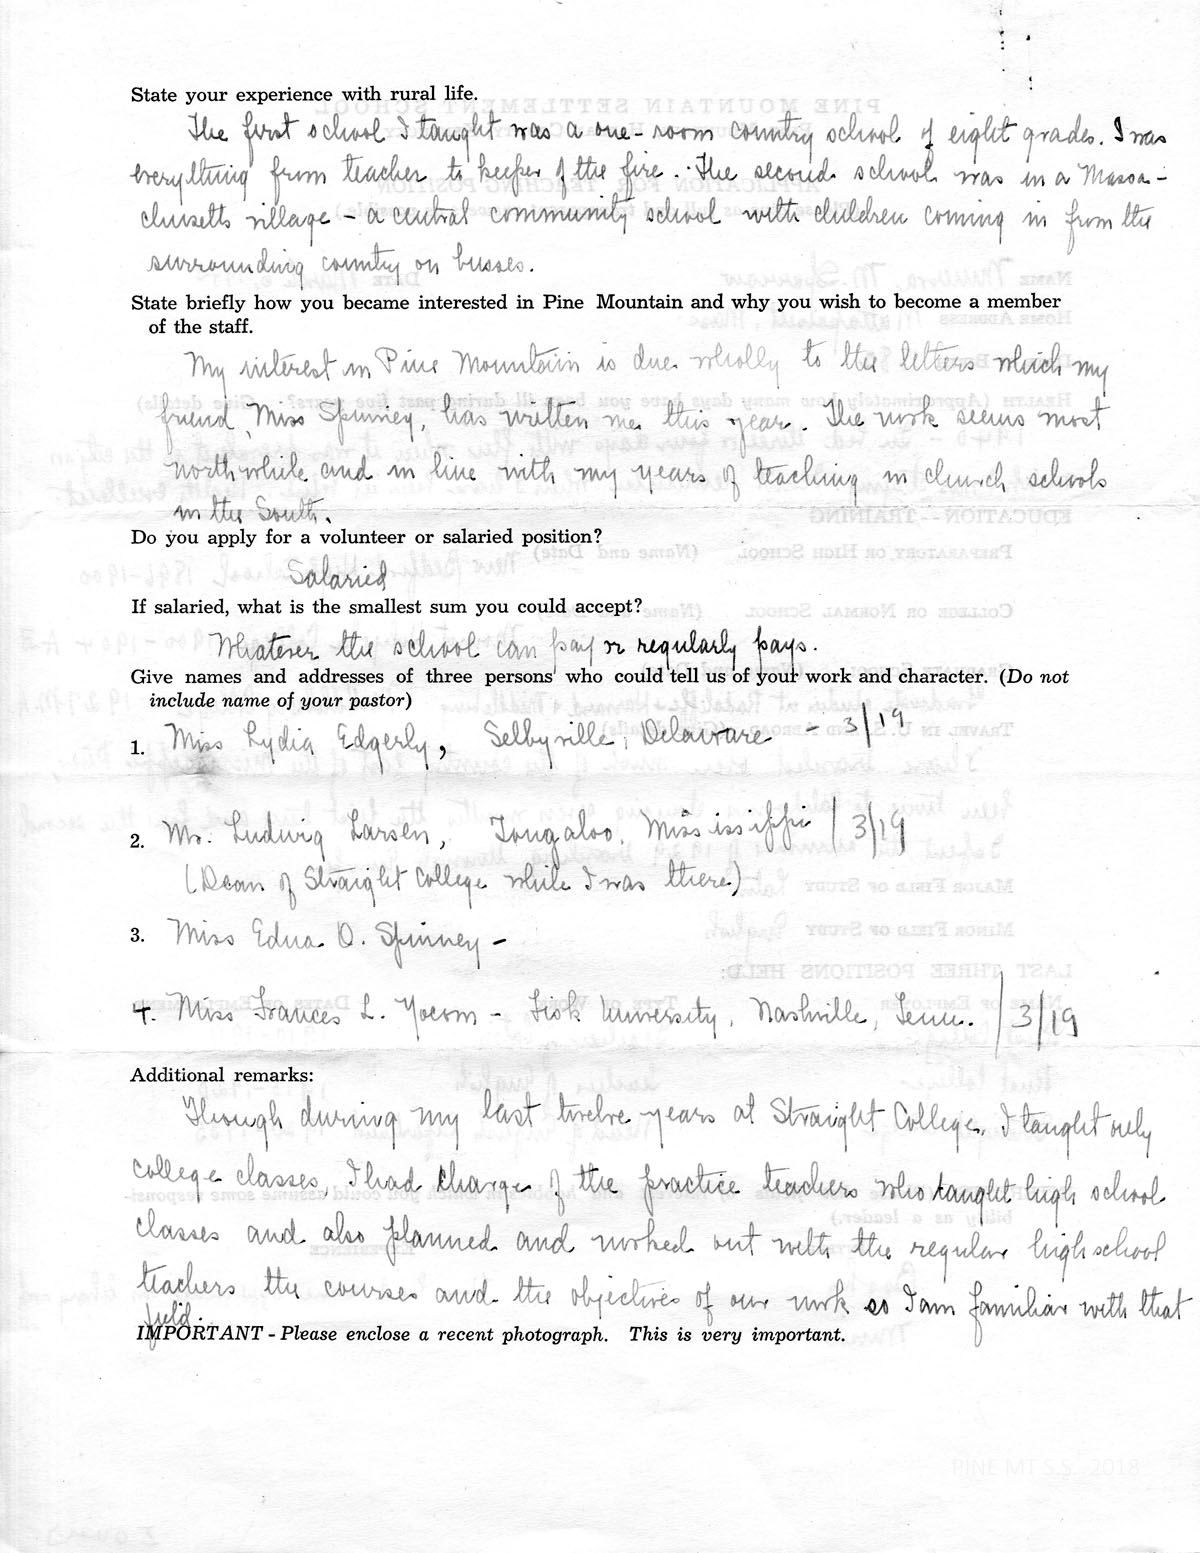 State your experience with rural life.
The first school I taught was a one-room country school of eight grades. I was
everything from teacher to keeper of the fire. The second school was in a Massa-
chusetts village - a central community school with children coming in from the
surrounding country on busses.
State briefly how you became interested in Pine Mountain and why you wish to become a member
of the staff.
My interest in Pine Mountain is due wholly to the letters which my
friend, Miss Spinney, has written me this year. The work seems most
worth while and in line with my years of teaching in church schools
in the South.
Do you apply for a volunteer or salaried position?
Salaried
If salaried, what is the smallest sum you could accept?
Whatever the school can pay or regularly pays.
Give names and addresses of three persons who could tell us of your work and character. (Do not
include name of your pastor)
1. Miss Lydia Edgerly, Selbyville, Delaware - 3/19
2. Mr. Ludwig Larsen, Tougaloo, Mississippi / 3/19
(Dean of Straight College while I was there)
3. Miss Edna O. Spinney -
4. Miss Frances L. Yocom - Fisk University, Nashville, Tenn. / 3/19
Additional remarks:
Though during my last twelve years at Straight College, I taught only
college classes, I had charge of the practice teachers who taught high school
classes and also planned and worked out with the regular high school
teachers the courses and the objectives of our work so I am familiar with that
field.
IMPORTANT - Please enclose a recent photograph. This is very important.
PINE MT S.S. 2018